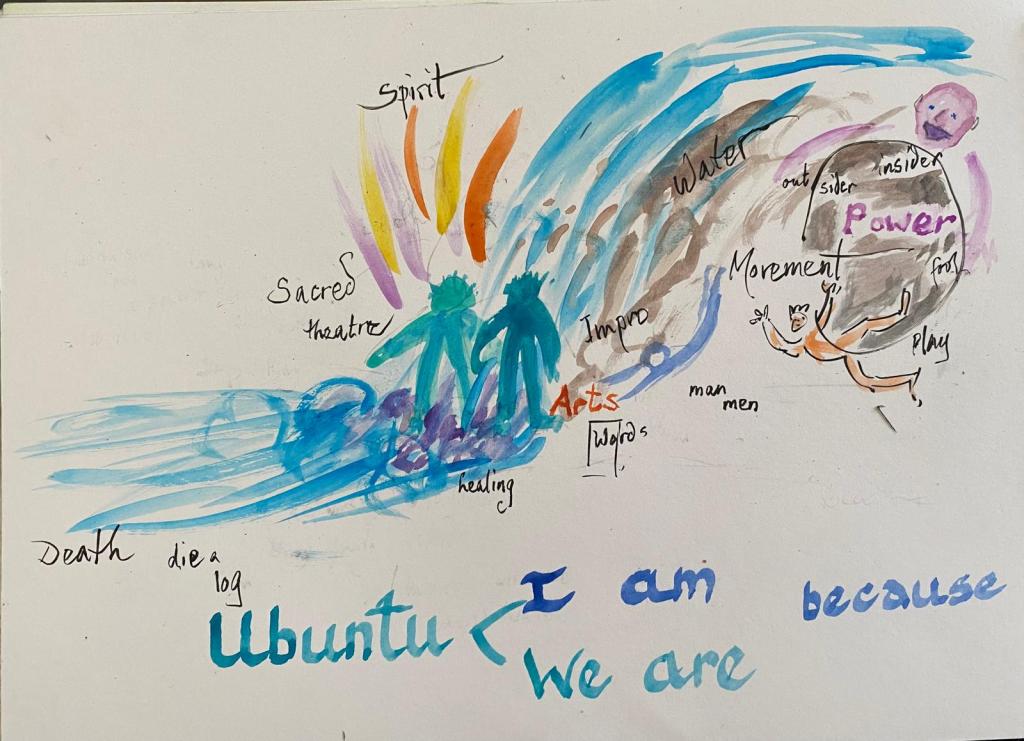 Spirit
Water
out
sider
insider
Power
Movement
fool
Sacred
theatre
Impro
play
man
men
Arts
Words
healing
Death
die a
log
Ubuntu < I am because
We are